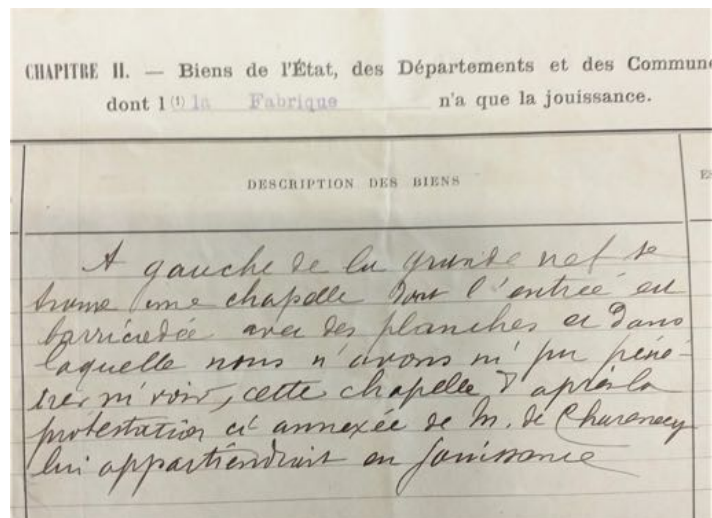 CHAPITRE II. — Biens de l'État, des Départements et des Commune
dont l (1) la Fabrique n'a que la jouissance.
DESCRIPTION DES BIENS
ES
A gauche de la grande nef se
trouve une chapelle dont l'entrée est
barricadée avec des planches et dans
laquelle nous n'avons ni pu péné-
trer ni voir, cette chapelle d'après la
protestation ci annexée de M. de Charencey
lui appartiendrait en jouissance